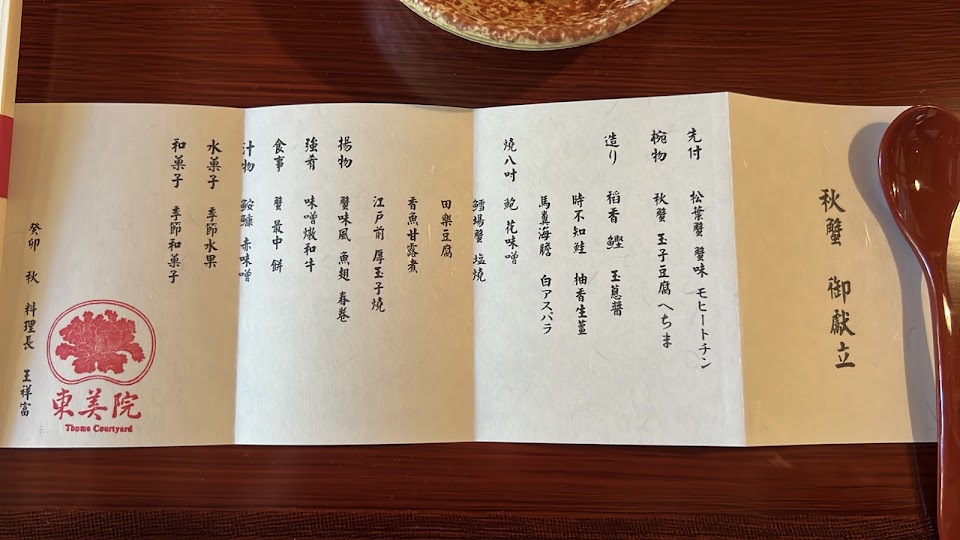 秋蟹 御献立
先付 松葉蟹 蟹味 モヒートチン
椀物 秋蟹 玉子豆腐 へちま
造り 稲香 鰹 玉蔥醬
時不知鮭 柚香生薑
馬糞海膽 白アスパラ
燒八吋 鮑 花味噌
鱈場蟹 塩燒
田樂豆腐
香魚甘露煮
江戸前 厚玉子燒
揚物 蟹味風 魚翅 春巻
強肴 味噌燉和牛
食事 蟹 最中 餅
汁物 鮟鱇 赤味噌
水菓子 季節水果
和菓子 季節和菓子
癸卯 秋 料理長 王祥富
東美院
Thome Courtyard